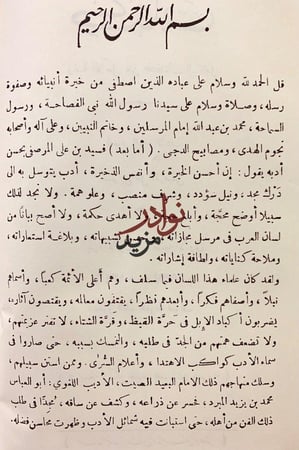 بسم الله الرحمن الرحيم
قل الحمد لله وسلام على عباده الذين اصطفى من خيرة أنبيائه وصفوة
رسله، وصلاة وسلام على سيدنا رسول الله نبي الفصاحة، ورسول
السماحة، محمد بن عبد الله إمام المرسلين، وخاتم النبيين، وعلى آله وأصحابه
نجوم الهدى، ومصابيح الدجى. (أما بعد) فسيد بن علي المرصفي يحسن
أدبه يقول: إن أحسن الخيرة، وأنفس الذخيرة، أدب يتوسل به إلى
درك مجد، ونيل سؤدد، وشرف منصب، وعلو همة. ولا نجد لذلك
سبيلا أوضح محجة، وأبلغ ولا أهدى حكمة، ولا أصح بيانا من
لسان العرب في مرسل مجازاته تشبيهاته، وبلاغة استعاراته،
وملاحة كناياته، ولطافة إشاراته.
ولقد كان علماء هذا اللسان فيما سلف، وهم أعلى الأئمة كعبا، وأسماهم
نبلا، وأصفاهم فكرا، وأبعدهم نظرا، يقتفون معالمه، ويقتصون آثاره،
يضربون أكباد الإبل في حرة القيظ، وقرة الشتاء، لا تفتر عزيمتهم،
ولا تضعف همتهم من الجد في طلبه، والتمسك بسببه، حتى صاروا في
سماء الأدب كواكب الاهتدا، وأعلام السرى. وممن استن سبيلهم،
وسلك منهاجهم ذلك الإمام البعيد الصيت، الأديب اللغوي: أبو العباس
محمد بن يزيد المبرد، حسر عن ذراعه، وكشف عن ساقه، مجدا في طلب
ذلك الفن من أهله، حتى استبانت فيه شمائل الأدب وظهرت محاسن فضله.
نوادر
مزيد